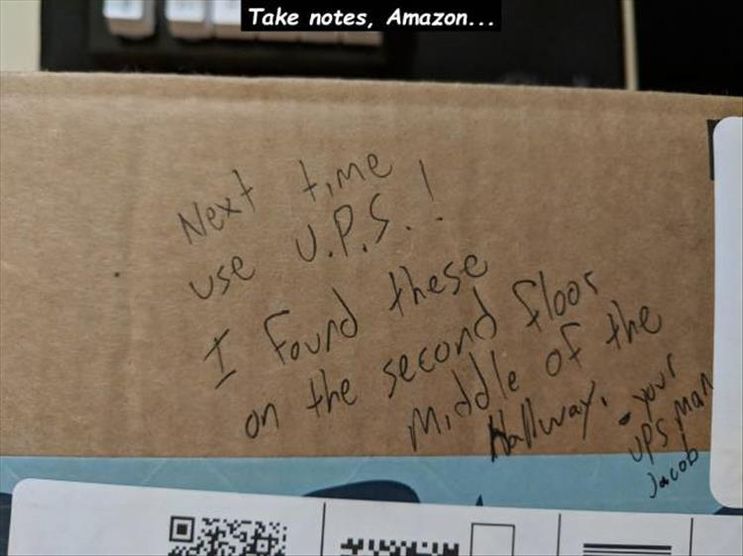 Take notes, Amazon...
Next time
use U.P.S.!
I found these
on the second floor
Middle of the
Hallway.
- your
UPS Man
Jacob